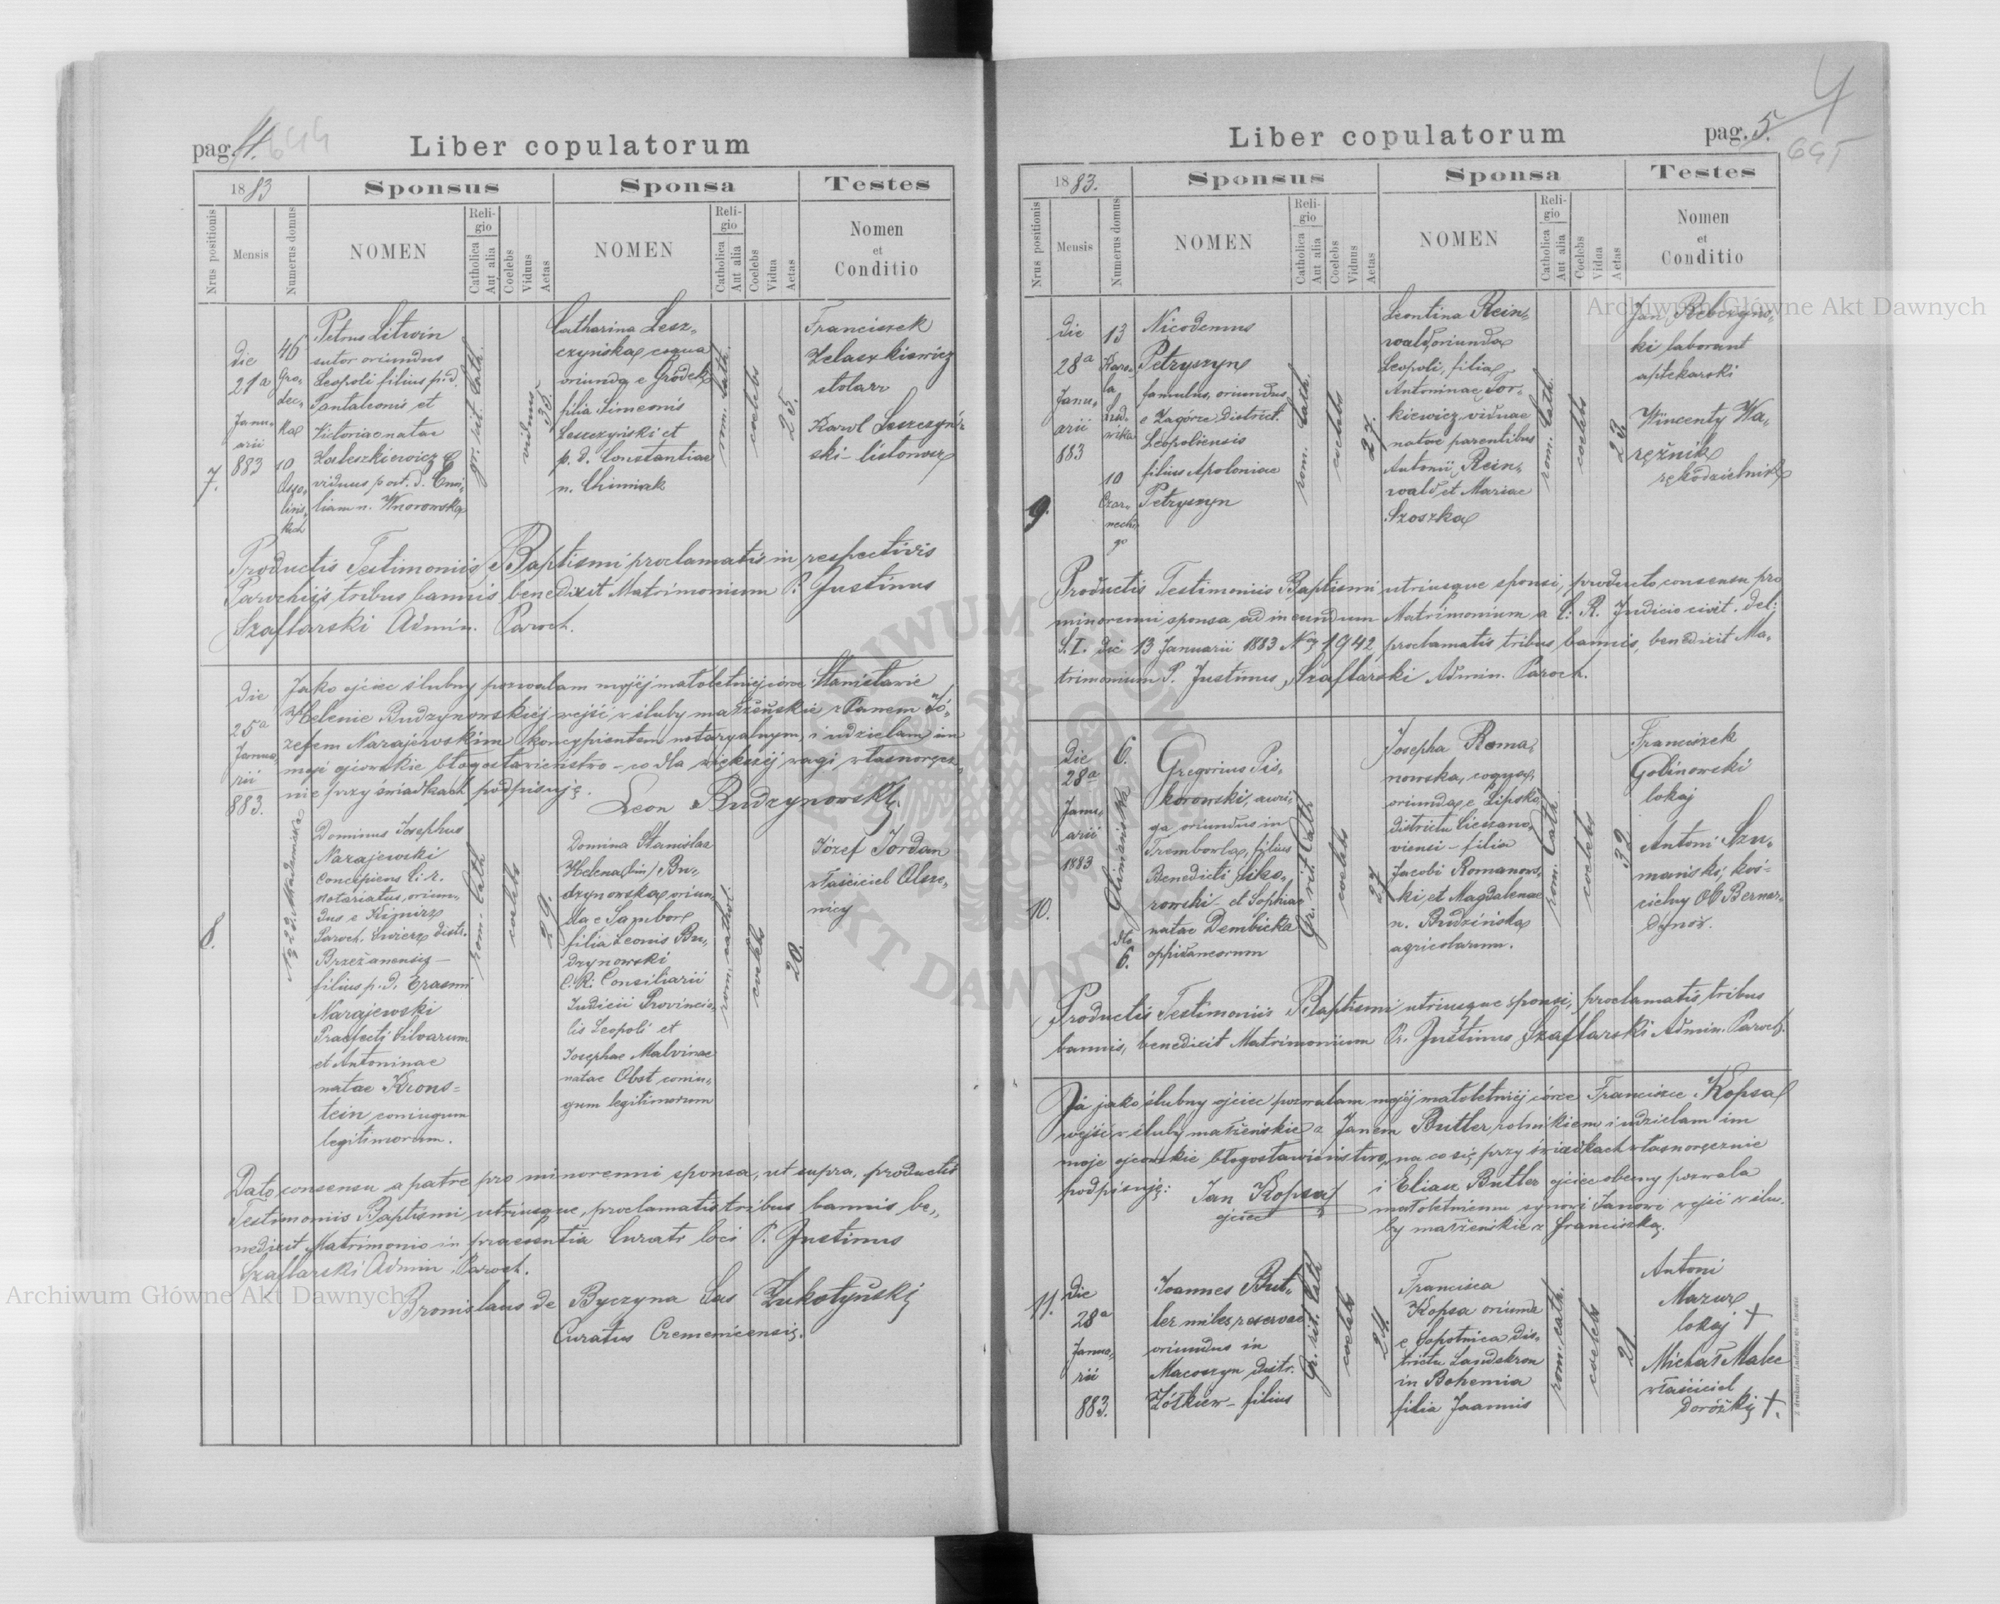 pag. 4. 644
Liber copulatorum
1883
Sponsus
Sponsa
Testes
Nrus positionis
Mensis
Numerus domus
NOMEN
Religio
Catholica
Aut alia
Coelebs
Viduus
Aetas
NOMEN
Religio
Catholica
Aut alia
Coelebs
Vidua
Aetas
Nomen
et
Conditio
7.
die
21a
Janu-
arii
883
46
Gro-
dec-
ka
10
Osso-
lińs-
kich
Petrus Litwin
sutor oriundus
Leopoli filius p. d.
Pantaleonis et
Victoriae natae
Zaleszkiewicz
viduus post. d. Emi-
liam n. Wnorowska
gr. rit. cath.
viduus
35.
Catharina Lesz-
czyńska, coqua
oriunda e Gródek
filia Simeonis
Leszczyński et
p. d. Constantiae
n. Chimiak
rom. cath.
coelebs
25.
Franciszek
Żelaszkiewicz
stolarz
Karol Leszczyń-
ski - listonosz
Productis Testimoniis Baptismi proclamatis in respectivis
Parochiis tribus bannis benedixit Matrimonium P. Justinus
Szaflarski Admin. Paroch.
8.
die
25a
Janua-
rii
883.
Jako ojciec ślubny pozwalam mojéj małoletniej córce Stanisławie
Helenie Budzynowskiéj wejść w śluby małżeńskie z Panem Jó-
zefem Narajewskim koncypientem notaryalnym, i udzielam im
moje ojcowskie błogosławieństwo - co dla większej wagi własnoręcz-
nie przy świadkach podpisuję.
Leon Budzynowski
N 2 d. Akademicka
Dominus Josephus
Narajewski
Concipiens c. r.
notariatus, oriun-
dus e Kijnirz
Paroch. Swierz distr.
Brzeżanensis -
filius p. d. Erasmi
Narajewski
Praefecti silvarum
et Antoninae
natae Krons-
tein coniugum
legitimorum.
rom. Cath.
coelebs
29.
Domina Stanislaa
Helena (bin) Bu-
dzynowska oriun-
da e Sambor
filia Leonis Bu-
dzynowski
C. R. Consiliarii
Judicii Provincia-
lis Leopoli et
Josephae Malvinae
natae Obst coniu-
gum legitimorum
rom. cathol.
coelebs
20.
Józef Jordan
właściciel Olsze-
nicy
Dato consensu a patre pro minorenni sponsa, ut supra, productis
Testimoniis Baptismi utriusque, proclamatis tribus bannis be-
nedixit Matrimonio in praesentia Curati loci P. Justinus
Szaflarski Admin. Paroch.
Bronislaus de Byczyna Sas Żukotyński
Curatus Cremenicensis.
4
Liber copulatorum
pag. 5.
645
1883.
Sponsus
Sponsa
Testes
Nrus positionis
Mensis
Numerus domus
NOMEN
Religio
Catholica
Aut alia
Coelebs
Viduus
Aetas
NOMEN
Religio
Catholica
Aut alia
Coelebs
Vidua
Aetas
Nomen
et
Conditio
9.
die
28a
Janu-
arii
883
13
Karo-
la
Lud-
wika
10
Czar-
neckie-
go
Nicodemus
Petryszyn
famulus, oriundus
e Zagórze District.
Leopoliensis
filius Apoloniae
Petryszyn
rom. Cath.
coelebs
27.
Leontina Rein-
wald, oriunda
Leopoli, filia
Antoninae Tor-
kiewicz viduae
natae parentibus
Antonii Rein-
wald et Mariae
Szoszka
rom. Cath.
coelebs
23
Jan Rebczyńs-
ki laborant
aptekarski
Wincenty Wa-
rężnik
rękodzielnik
Productis Testimoniis Baptismi utriusque sponsi, producto consensu pro
minorenni sponsa ad ineundum Matrimonium a C. R. Judicio civit. del:
S. I. die 13 Januarii 1883 No 1942 proclamatis tribus bannis, benedixit Ma-
trimonium P. Justinus Szaflarski Admin. Paroch.
10.
Die
28a
Janu-
arii
1883
6.
Gliniańska
dto
6.
Gregorius Pis-
korowski, auri-
ga oriundus in
Trembowla, filius
Benedicti Pisko-
rowski et Sophiae
natae Dembicka
oppidaneorum
Gr. rit. Cath
coelebs
27
Josepha Roma-
nowska, coqua,
oriunda e Lipsko
districtu Cieszano-
viensi - filia
Jacobi Romanows-
ki, et Magdalenae
n. Budzińska
agricolarum.
rom. Cath.
coelebs
32
Franciszek
Golinowski
lokaj
Antoni Szu-
mański, koś-
cielny OO Bernar-
dynów.
Productis Testimoniis Baptismi utriusque sponsi, proclamatis tribus
bannis, benedixit Matrimonium Pr. Justinus Szaflarski Admin. Paroch.
Ja jako ślubny ojciec pozwalam mojéj małoletniej córce Franciszce Kopsa
wejść w śluby małżeńskie z Janem Butler rolnikiem i udzielam im
moje ojcowskie błogosławieństwo, na co się przy świadkach własnoręcznie
podpisuję: Jan Kopsa i Eliasz Butler ojciec obecny pozwala
ojciec małoletniemu synowi Janowi wejść w ślu-
by małżeńskie z Franciszką.
11.
Die
28a
Janua-
rii
883.
Joannes But-
ler miles reservae
oriundus in
Macoszyn distr.
Żółkiew - filius
Gr. rit. Cath
coelebs
24.
Francisca
Kopsa oriunda
e Sopotnica dis-
trictu Landskron
in Bohemia
filia Joannis
rom. cath.
coelebs
21
Antoni
Mazur
lokaj +
Michał Malec
właściciel
dorożki +.
Z drukarni Ludowej we Lwowie
Archiwum Główne Akt Dawnych
Archiwum Główne Akt Dawnych
ARCHIWUM GŁÓWNE AKT DAWNYCH